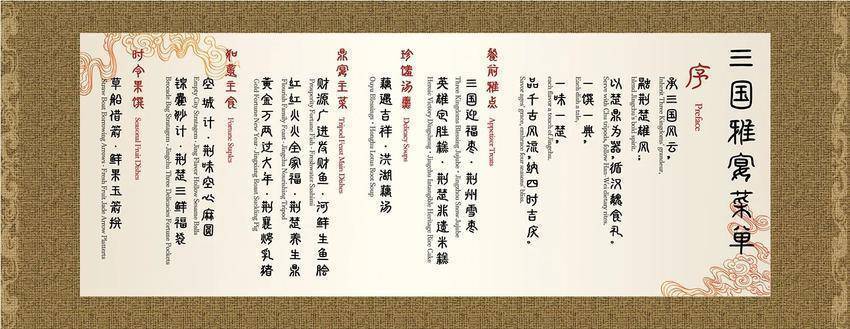 三国雅宴菜单
序
Preface
承三国风云，
Inherit Three Kingdoms' grandeur,
融荆楚雄风；
blend Jingchu's bold spirit;
以楚鼎为器，循汉魏食礼。
Serve with Chu tripods, follow Han-Wei dietary rites.
一馔一典，
Each dish a tale,
一味一楚，
each flavor a touch of Jingchu.
品千古风流，纳四时吉庆。
Savor ages' grace, embrace four seasons' bliss.
餐前雅点
Appetizer Treats
三国迎福枣·荆州雪枣
Three Kingdoms Blessing Jujube · Jingzhou Snow Jujube
英雄定胜糕·荆楚非遗米糕
Heroic Victory Dingsheng · Jingchu Intangible Heritage Rice Cake
珍馐汤羹
Delicacy Soups
藕遇吉祥·洪湖藕汤
Ouyu Blessings · Honghu Lotus Root Soup
鼎宴主菜
Tripod Feast Main Dishes
财源广进发财鱼·河鲜生鱼脍
Prosperity Fortune Fish · Freshwater Sashimi
红红火火全家福·荆楚养生鼎
Flourish Family Feast · Jingchu Nourishing Tripod
黄金万两过大年·荆襄烤乳猪
Gold Fortune New Year · Jingxiang Roast Suckling Pig
如意主食
Fortune Staples
空城计·荆味空心麻圆
Empty City Strategy · Jing Flavor Hollow Sesame Balls
锦囊妙计·荆楚三鲜福袋
Brocade Bag Stratagem · Jingchu Three Delicacies Fortune Pockets
时令果馔
Seasonal Fruit Dishes
草船借箭·鲜果玉箭摆
Straw Boat Borrowing Arrows · Fresh Fruit Jade Arrow Platters